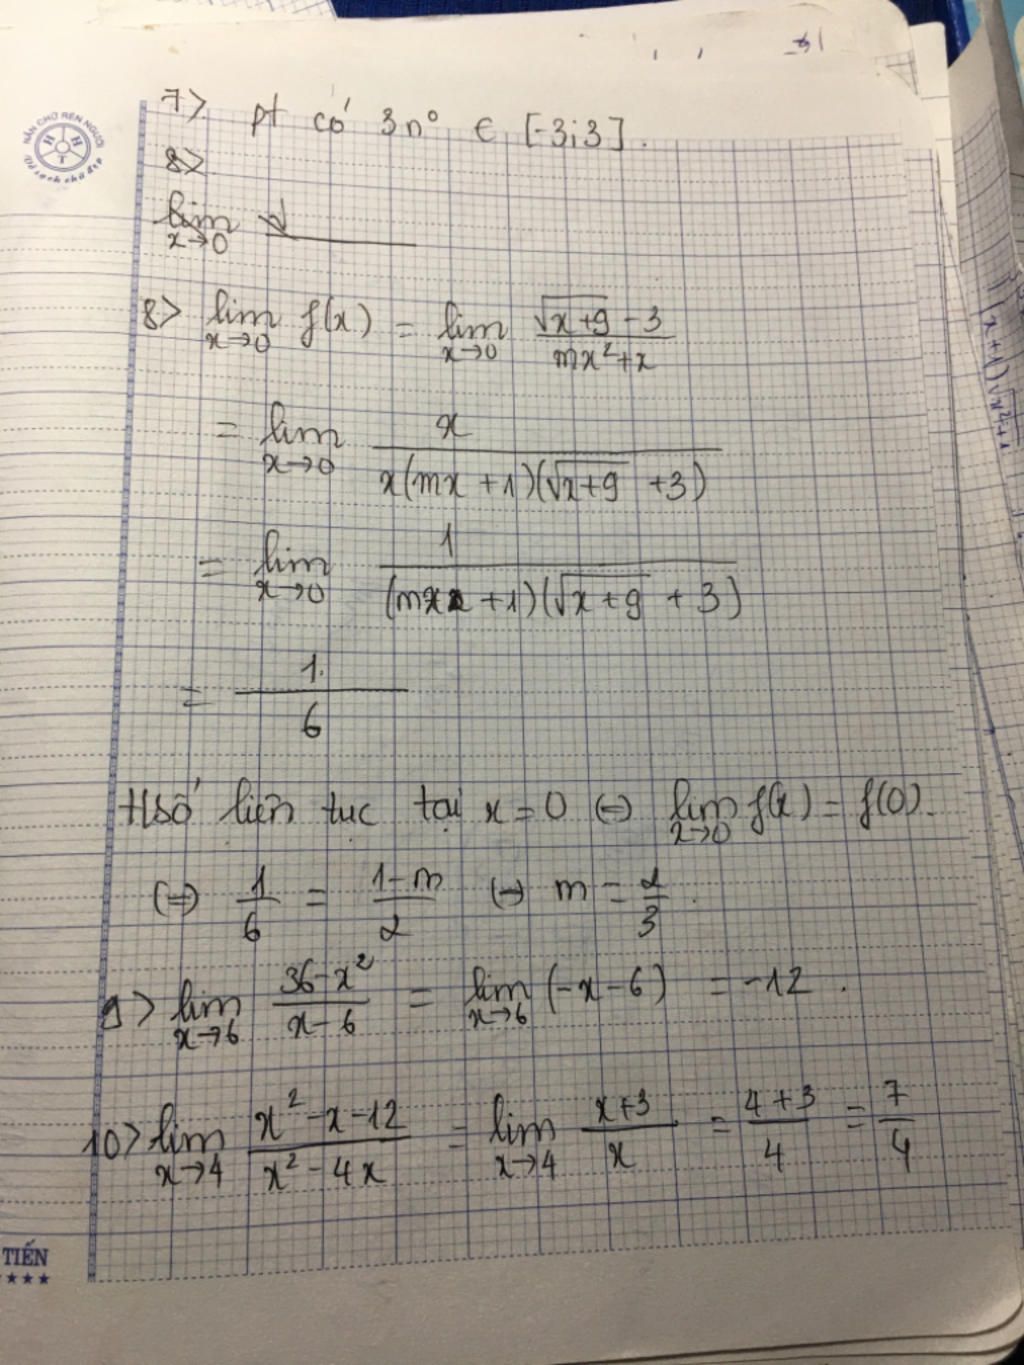 7> pt có 3n° ∈ [-3;3].
8>
lim x→0
8> lim x→0 f(x) = lim x→0 (√(x+9) - 3)/(mx² + x)
= lim x→0 x/(x(mx + 1)(√(x+9) + 3))
= lim x→0 1/((mx + 1)(√(x+9) + 3))
= 1/6
Hsố liên tục tại x = 0 ⇔ lim x→0 f(x) = f(0).
⇔ 1/6 = (1-m)/2 ⇔ m = 2/3.
9> lim x→6 (36-x²)/(x-6) = lim x→6 (-x-6) = -12.
10> lim x→4 (x²-x-12)/(x²-4x) = lim x→4 (x+3)/x = (4+3)/4 = 7/4
NẮN CHỮ RÈN NGƯỜI
H H T
TIẾN
★★★★